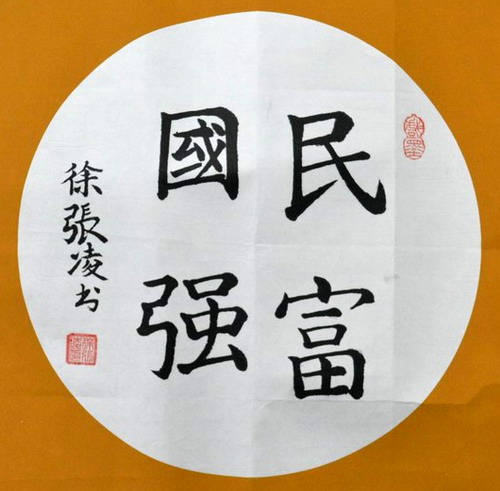 民富
國强
徐張凌书